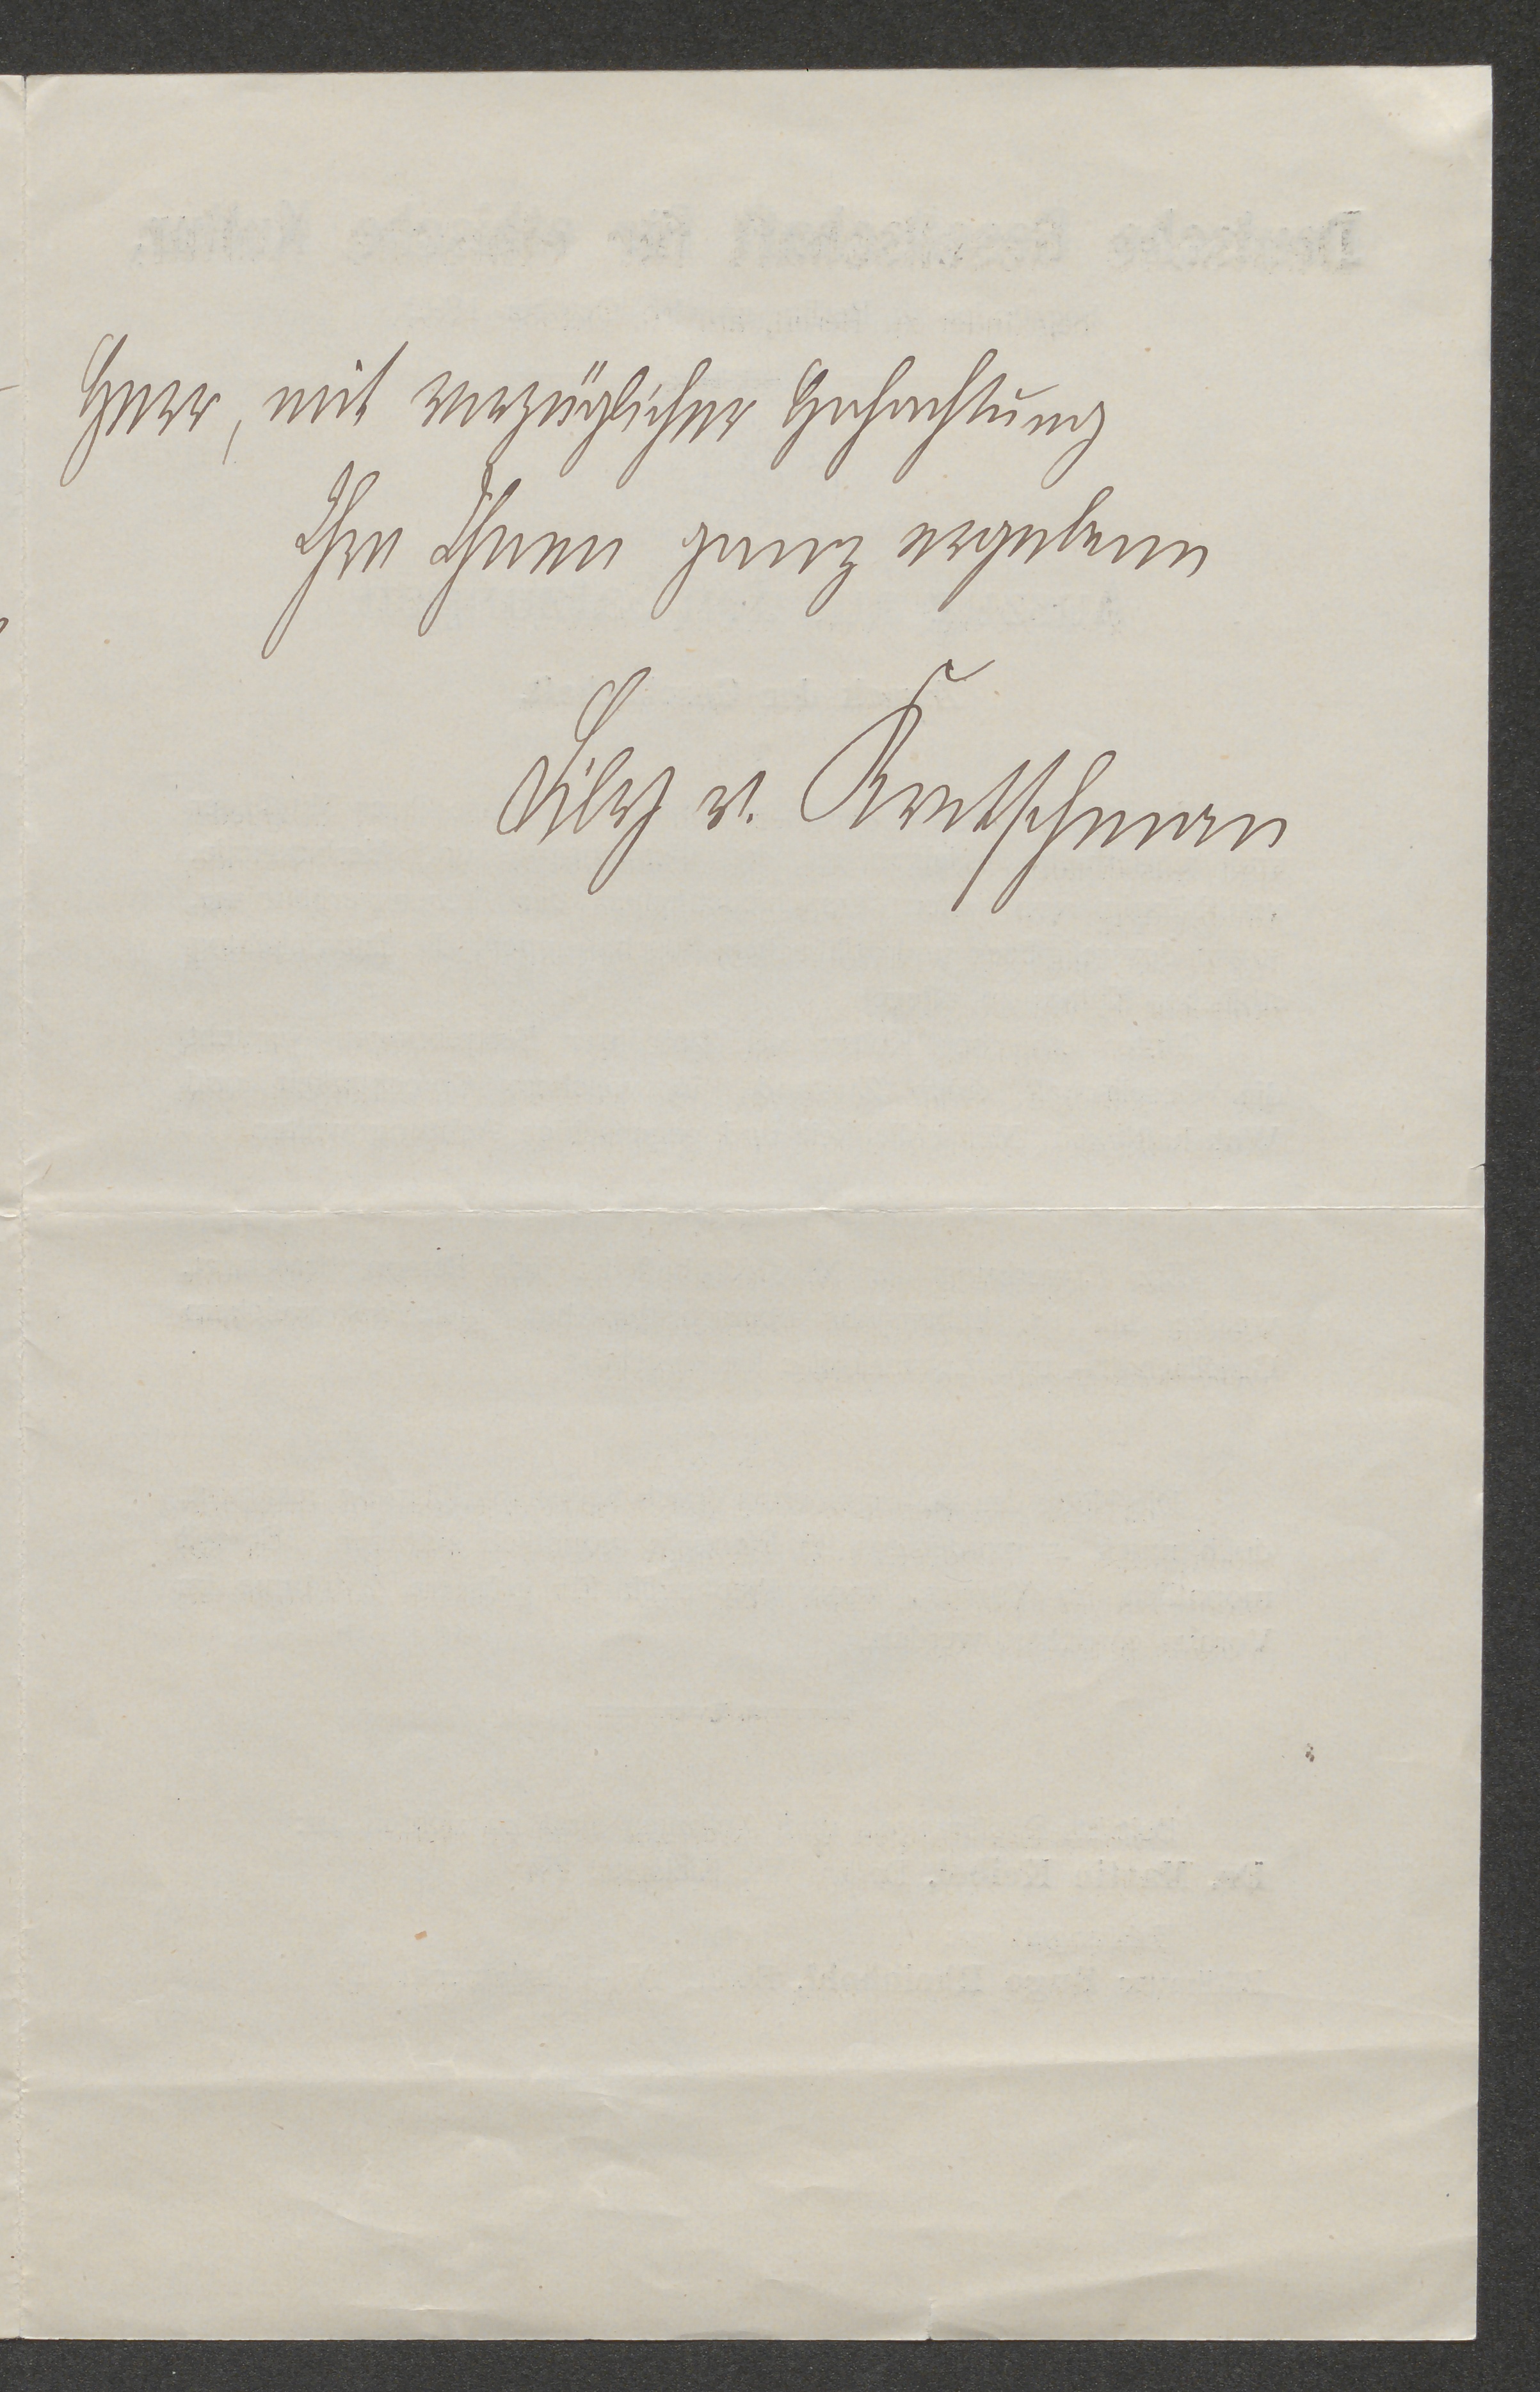 Herr, mit vorzüglicher Hochachtung
Ihre Ihnen ganz ergebene
Lily v. Kretschman